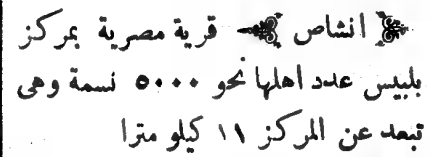 ﴿ انشاص ﴾ قرية مصرية بمركز
بلبيس عدد اهلها نحو ٥٠٠٠ نسمة وهى
تبعد عن المركز ١١ كيلو مترا